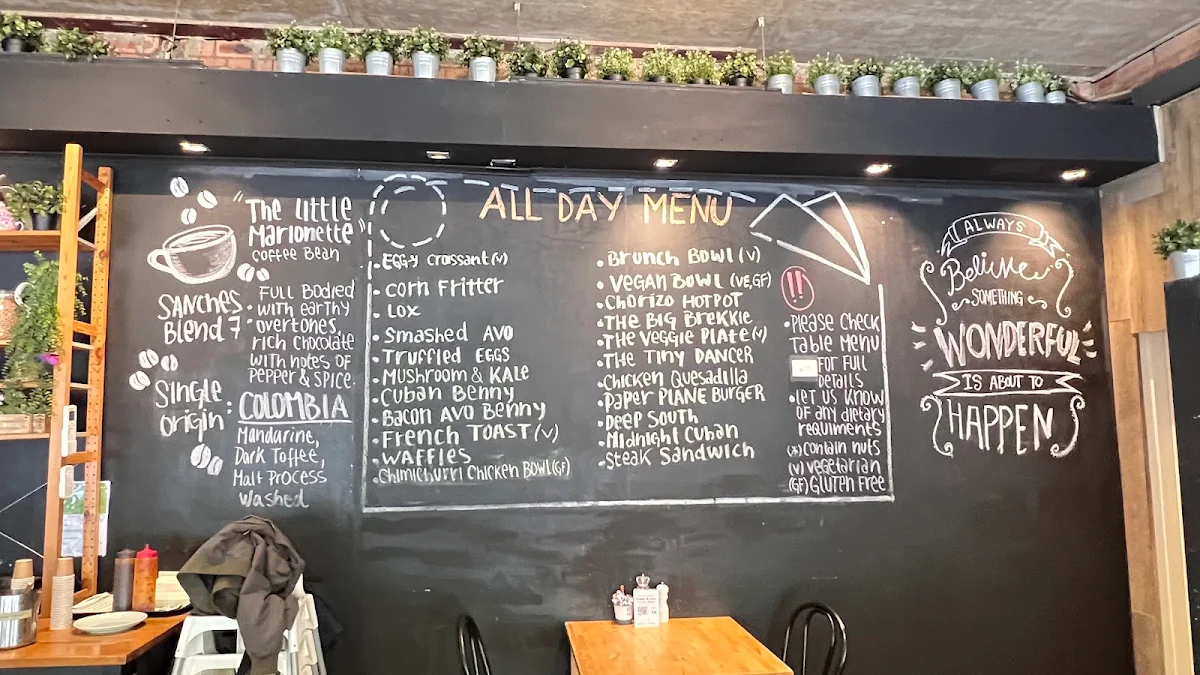 "The Little
Marionette"
Coffee Bean
SANCHES
Blend 7
• FULL BODIED
with earthy
• overtones,
rich chocolate
with notes of
Pepper & Spice.
Single
Origin :
COLOMBIA
Mandarine,
Dark Toffee,
Malt Process
Washed
ALL DAY MENU
• EGGY Croissant (v)
• Corn Fritter
• LOX
• Smashed AVO
• Truffled EGGS
• Mushroom & KALE
• Cuban Benny
• Bacon Avo Benny
• French TOAST (v)
• WAFFLES
• Chimichurri Chicken BOWL (GF)
• Brunch Bowl (v)
• VEGAN BOWL (VE,GF)
• Chorizo HOTPOT
• THE BIG BREKKIE
• THE VEGGIE PLATE (v)
• THE TINY DANCER
• Chicken Quesadilla
• Paper PLANE BURGER
• Deep South
• Midnight Cuban
• Steak Sandwich
!!
• Please Check
Table Menu
FOR FULL
Details
• LET US KNOW
OF any dietary
requiments
(*) Contain nuts
(V) Vegetarian
(GF) Gluten Free
ALWAYS
Believe
SOMETHING
WONDERFUL
IS ABOUT TO
HAPPEN